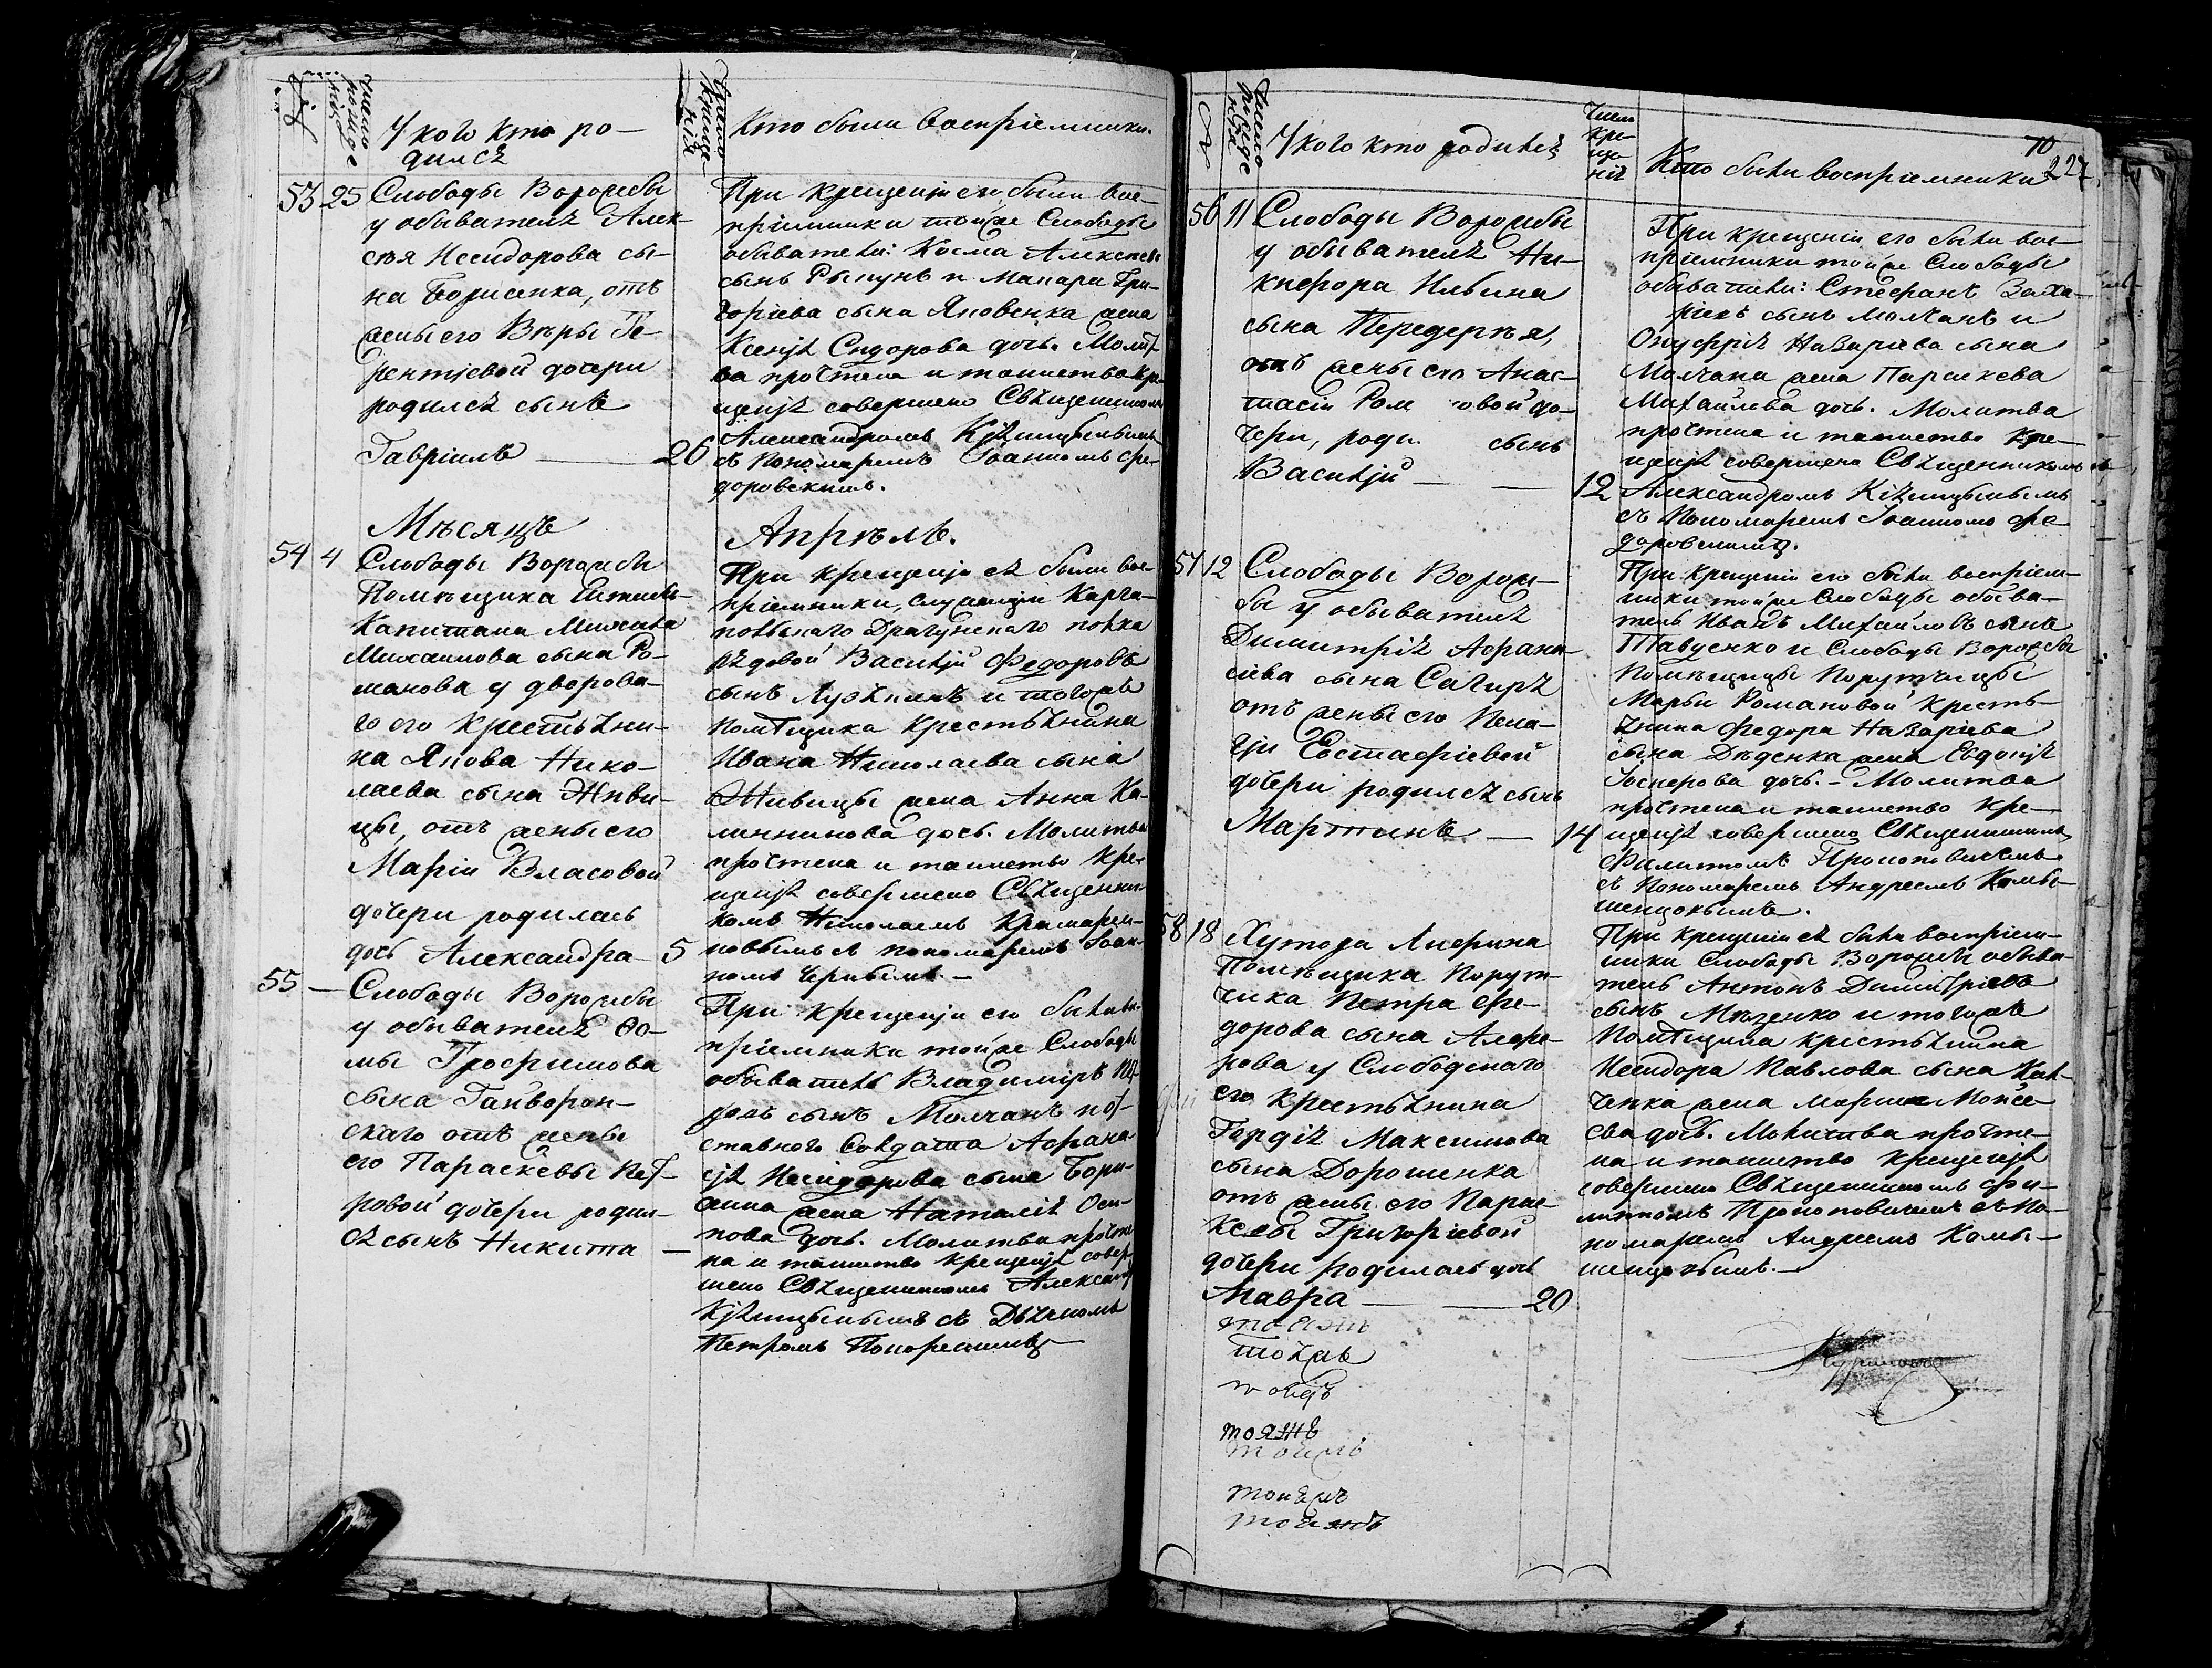 №
Число рожде
нія
У кого кто ро-
дился
Число креще-
нія
Кто были воспріемники.
53 25 Слободы Ворожбы
у обывателя Алек-
сѣя Исидорова сы-
на Борисенка, отъ
жены его Вѣры Те-
рентіевой дочери
родился сынъ
Гавріилъ — 26
При крещеніи его были вос-
пріемники тойже Слободы
обыватели: Косма Алексѣевъ
сынъ и Макара Гри-
горіева сына Яковенка жена
Ксенія Сидорова дочь. Молит-
ва прочтена и таинство кре-
щенія совершено Священникомъ
Александромъ
съ Пономаремъ Іоанномъ Фе-
доровскимъ.
Мѣсяцъ
Апрѣль.
54 4 Слободы Ворожбы
Помѣщика Штабсъ-
Капитана Михаила
Михаилова сына Ро-
манова у дворова-
го его крестьяни-
на Якова Нико-
лаева сына Живи-
цы, отъ жены его
Маріи Власовой
дочери родилась
дочь Александра — 5
При крещеніи ея были вос-
пріемники, служащій Карго-
польскаго Драгунскаго полка
рядовой Василій Федоровъ
сынъ и тогоже
помѣщика крестьянина
Ивана Николаева сына
Живицы жена Анна Ка-
линникова дочь. Молитва
прочтена и таинство кре-
щенія совершено Священни-
комъ Николаемъ
съ пономаремъ Іоан-
номъ —
55 — Слободы Ворожбы
у обывателя Ѳо-
мы Трофимова
сына Гайворон-
скаго отъ жены
его Параскевы Пет-
ровой дочери родил-
ся сынъ Никита —
При крещеніи его были вос-
пріемники тойже Слободы
обыватель Владимиръ Пет-
ровъ сынъ Молчанъ и от-
ставного Солдата Афана-
сія Исидорова сына Бори-
сенка жена Наталія Оси-
пова дочь. Молитва прочте-
на и таинство крещенія совер-
шено Священникомъ Александ
съ Дьячкомъ
Петромъ
№
Число рожде
нія
У кого кто родился
Число
кре-
ще-
нія
Кто были воспріемники
70
227
56 11 Слободы Ворожбы
у обывателя Ни-
кифора Ильина
сына Передерѣя,
отъ жены его Анас-
тасіи Ром овой до-
чери, роди сынъ
Василій — — 12
При крещеніи его были вос-
пріемники тойже Слободы
обыватели: Стефанъ Заха-
ріевъ сынъ Молчанъ и
Онуфрія Назаріева сына
Молчана жена Параскева
Михайлова дочь. Молитва
прочтена и таинство кре-
щенія совершено Священникомъ
Александромъ
съ Пономаремъ Іоанномъ Фе-
доровскимъ.
57 12 Слободы Ворож-
бы у обывателя
Димитрія Афана-
сіева сына
отъ жены его Пела-
гіи Евстафіевой
дочери родился сынъ
Мартинъ — 14
При крещеніи его были воспріем-
ники тойже Слободы обыва-
тель Иванъ Михайловъ сынъ
и Слободы Ворожбы
Помѣщицы Порутчицы
Марьи Романовой кресть-
янина Федора Назаріева
сына Дѣденка жена Евдокія
дочь. — Молитва
прочтена и таинство кре-
щенія совершено Священникомъ
Филиппомъ Прокоповичемъ
съ Пономаремъ Андреемъ Комы-
шенцовымъ.
58 18 Хутора
Помѣщика Порут-
чика Петра Фе-
дорова сына Алфе-
рова у Слободскаго
его крестьянина
Гордія Максимова
сына Дорошенка
отъ жены его Парас-
кевы Григоріевой
дочери родилась дочь
Мавра — — 20
При крещеніи ея были воспріем-
ники Слободы Ворожбы обыва-
тель Антонъ Димитріевъ
сынъ и тогоже
Помѣщика крестьянина
Исидора Павлова сына
жена Марина Мойсе-
ева дочь. Молитва прочте-
на и таинство крещенія
совершено Священникомъ Фи-
липпомъ Прокоповичемъ съ По-
номаремъ Андреемъ Комы-
шенцовымъ. —